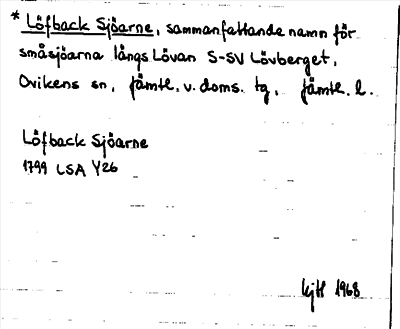 * Löfback Sjöarne, sammanfattande namn för
småsjöarna långs Lövan S-SV Lövberget,
Ovikens sn, Jämtl. v. doms. tg, Jämtl. l.
Löfback Sjöarne
1799 LSA Y26
1968